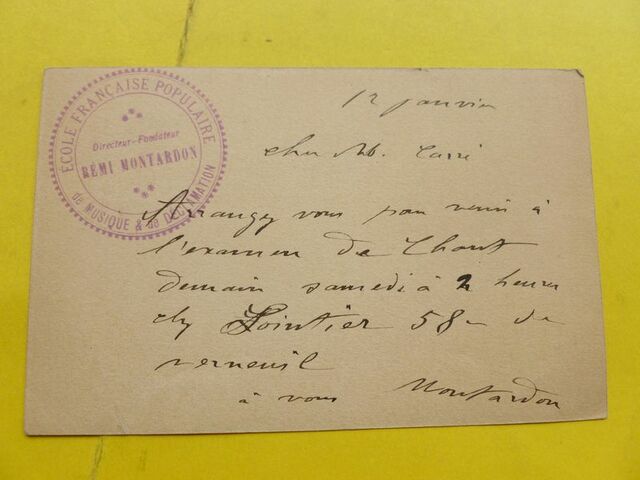 ÉCOLE FRANÇAISE POPULAIRE
Directeur-Fondateur
RÉMI MONTARDON
de MUSIQUE & de DÉCLAMATION
12 janvier
cher M. Carré
Arrangez vous pour venir à
l'examen de Chant
demain samedi à 2 heures
chez Lointier 58 r de
verneuil
à vous Montardon